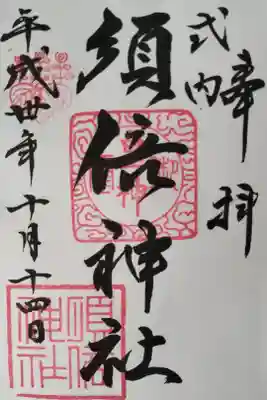 奉拝
式内
須倍神社
平成丗年十月十四日
須倍神社